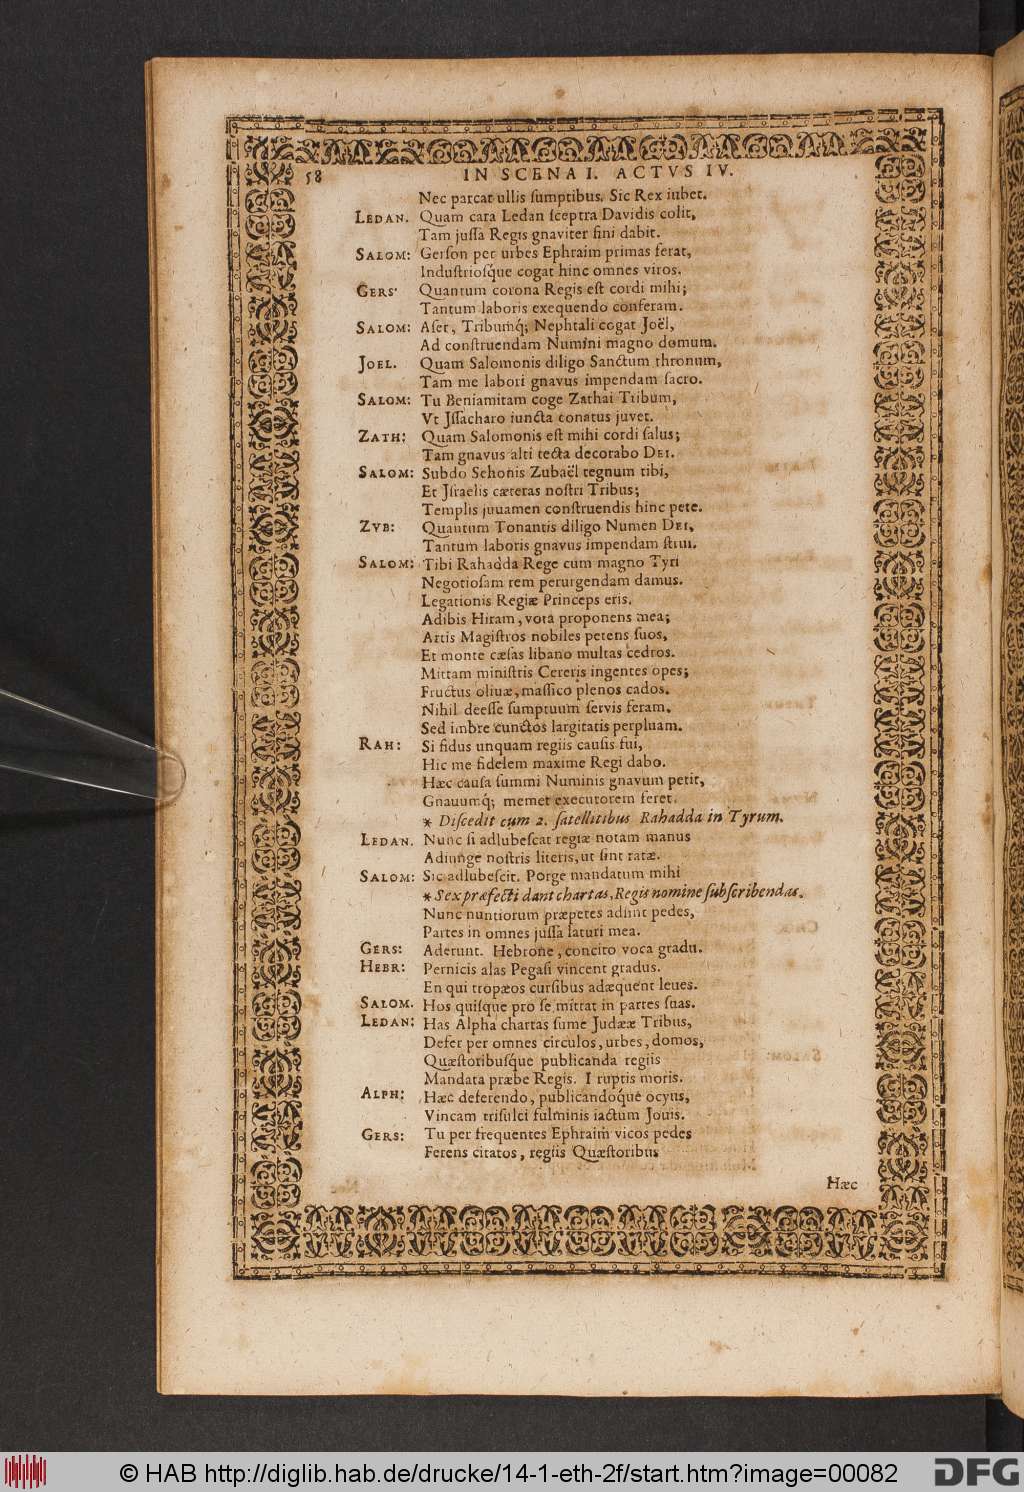 58
IN SCENA I. ACTVS IV.
Nec parcat ullis ſumptibus. Sic Rex iubet.
LEDAN. Quam cara Ledan ſceptra Davidis colit,
Tam juſſa Regis gnaviter fini dabit.
SALOM: Gerſon per urbes Ephraim primas ferat,
Induſtrioſq́ue cogat hinc omnes viros.
GERS· Quantum corona Regis eſt cordi mihi;
Tantum laboris exequendo conferam.
SALOM: Aſer, Tribumq́; Nephtali cogat Joël,
Ad conſtruendam Numini magno domum.
JOEL. Quam Salomonis diligo Sanctum thronum,
Tam me labori gnavus impendam ſacro.
SALOM: Tu Beniamitam coge Zathai Tribum,
Vt Jſſacharo iuncta conatus juvet.
ZATH: Quam Salomonis eſt mihi cordi ſalus;
Tam gnavus alti tecta decorabo DEI.
SALOM: Subdo Sehonis Zubaël regnum tibi,
Et Jſraelis cæteras noſtri Tribus;
Templis juuamen conſtruendis hinc pete.
ZVB: Quantum Tonantis diligo Numen DEI,
Tantum laboris gnavus impendam ſtrui.
SALOM: Tibi Rahadda Rege cum magno Tyri
Negotioſam rem perurgendam damus.
Legationis Regiæ Princeps eris.
Adibis Hiram, vota proponens mea;
Artis Magiſtros nobiles petens ſuos,
Et monte cæſas libano multas cedros.
Mittam miniſtris Cereris ingentes opes;
Fructus oliuæ, maſſico plenos cados.
Nihil deeſſe ſumptuum ſervis feram.
Sed imbre cunctos largitatis perpluam.
RAH: Si fidus unquam regiis cauſis fui,
Hic me fidelem maxime Regi dabo.
Hæc cauſa ſummi Numinis gnavum petit,
Gnauumq́; memet executorem feret.
* Diſcedit cum 2. ſatellitibus Rahadda in Tyrum.
LEDAN. Nunc ſi adlubeſcat regiæ notam manus
Adiunge noſtris literis, ut ſint ratæ.
SALOM: Sic adlubeſcit. Porge mandatum mihi
* Sex præfecti dant chartas, Regis nomine ſubſcribendas.
Nunc nuntiorum præpetes adſint pedes,
Partes in omnes juſſa laturi mea.
GERS: Aderunt. Hebrone, concito voca gradu.
HEBR: Pernicis alas Pegaſi vincent gradus.
En qui tropæos curſibus adæquent leues.
SALOM. Hos quiſque pro ſe mittat in partes ſuas.
LEDAN: Has Alpha chartas ſume Judææ Tribus,
Defer per omnes circulos, urbes, domos,
Quæſtoribuſq́ue publicanda regiis
Mandata præbe Regis. I ruptis moris.
ALPH: Hæc deferendo, publicandoq́ue ocyus,
Vincam triſulci fulminis iactum Jouis.
GERS: Tu per frequentes Ephraim vicos pedes
Ferens citatos, regiis Quæſtoribus
Hæc
© HAB http://diglib.hab.de/drucke/14-1-eth-2f/start.htm?image=00082
DFG